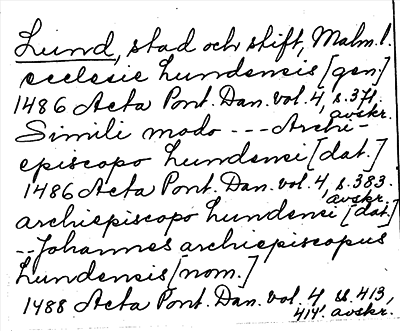 Lund, stad och stift, Malm. l.
ecclesie lundensis [gen.]
1486 Acta Pont. Dan. vol. 4, s. 371.
avskr.
Simili modo --- Archi-
episcopo lundensi [dat.]
1486 Acta Pont. Dan. vol. 4, s. 383.
avskr.
archiepiscopo lundensi [dat.]
-- Johannes archiepiscopus
lundensis [nom.]
1488 Acta Pont. Dan. vol. 4 ss. 413,
414. avskr.